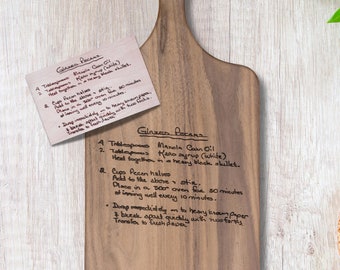 Glazed Pecans
4 Tablespoons Mazola Corn Oil
2 Tablespoons Karo syrup (white)
Heat together in a heavy black skillet.
2 Cups Pecan halves
Add to the above & stir.
Place in a 300° oven for 30 minutes
stirring well every 10 minutes.
• Dump immediately on to heavy brown paper
& break apart quickly with two forks
Transfer to fresh paper.
Glazed Pecans
4 Tablespoons Mazola Corn Oil
2 Tablespoons Karo syrup (white)
Heat together in a heavy black skillet.
2 Cups Pecan halves
Add to the above & stir.
Place in a 300° oven for 30 minutes
stirring well every 10 minutes.
• Dump immediately on to heavy brown paper
& break apart quickly with two forks
Transfer to fresh paper.